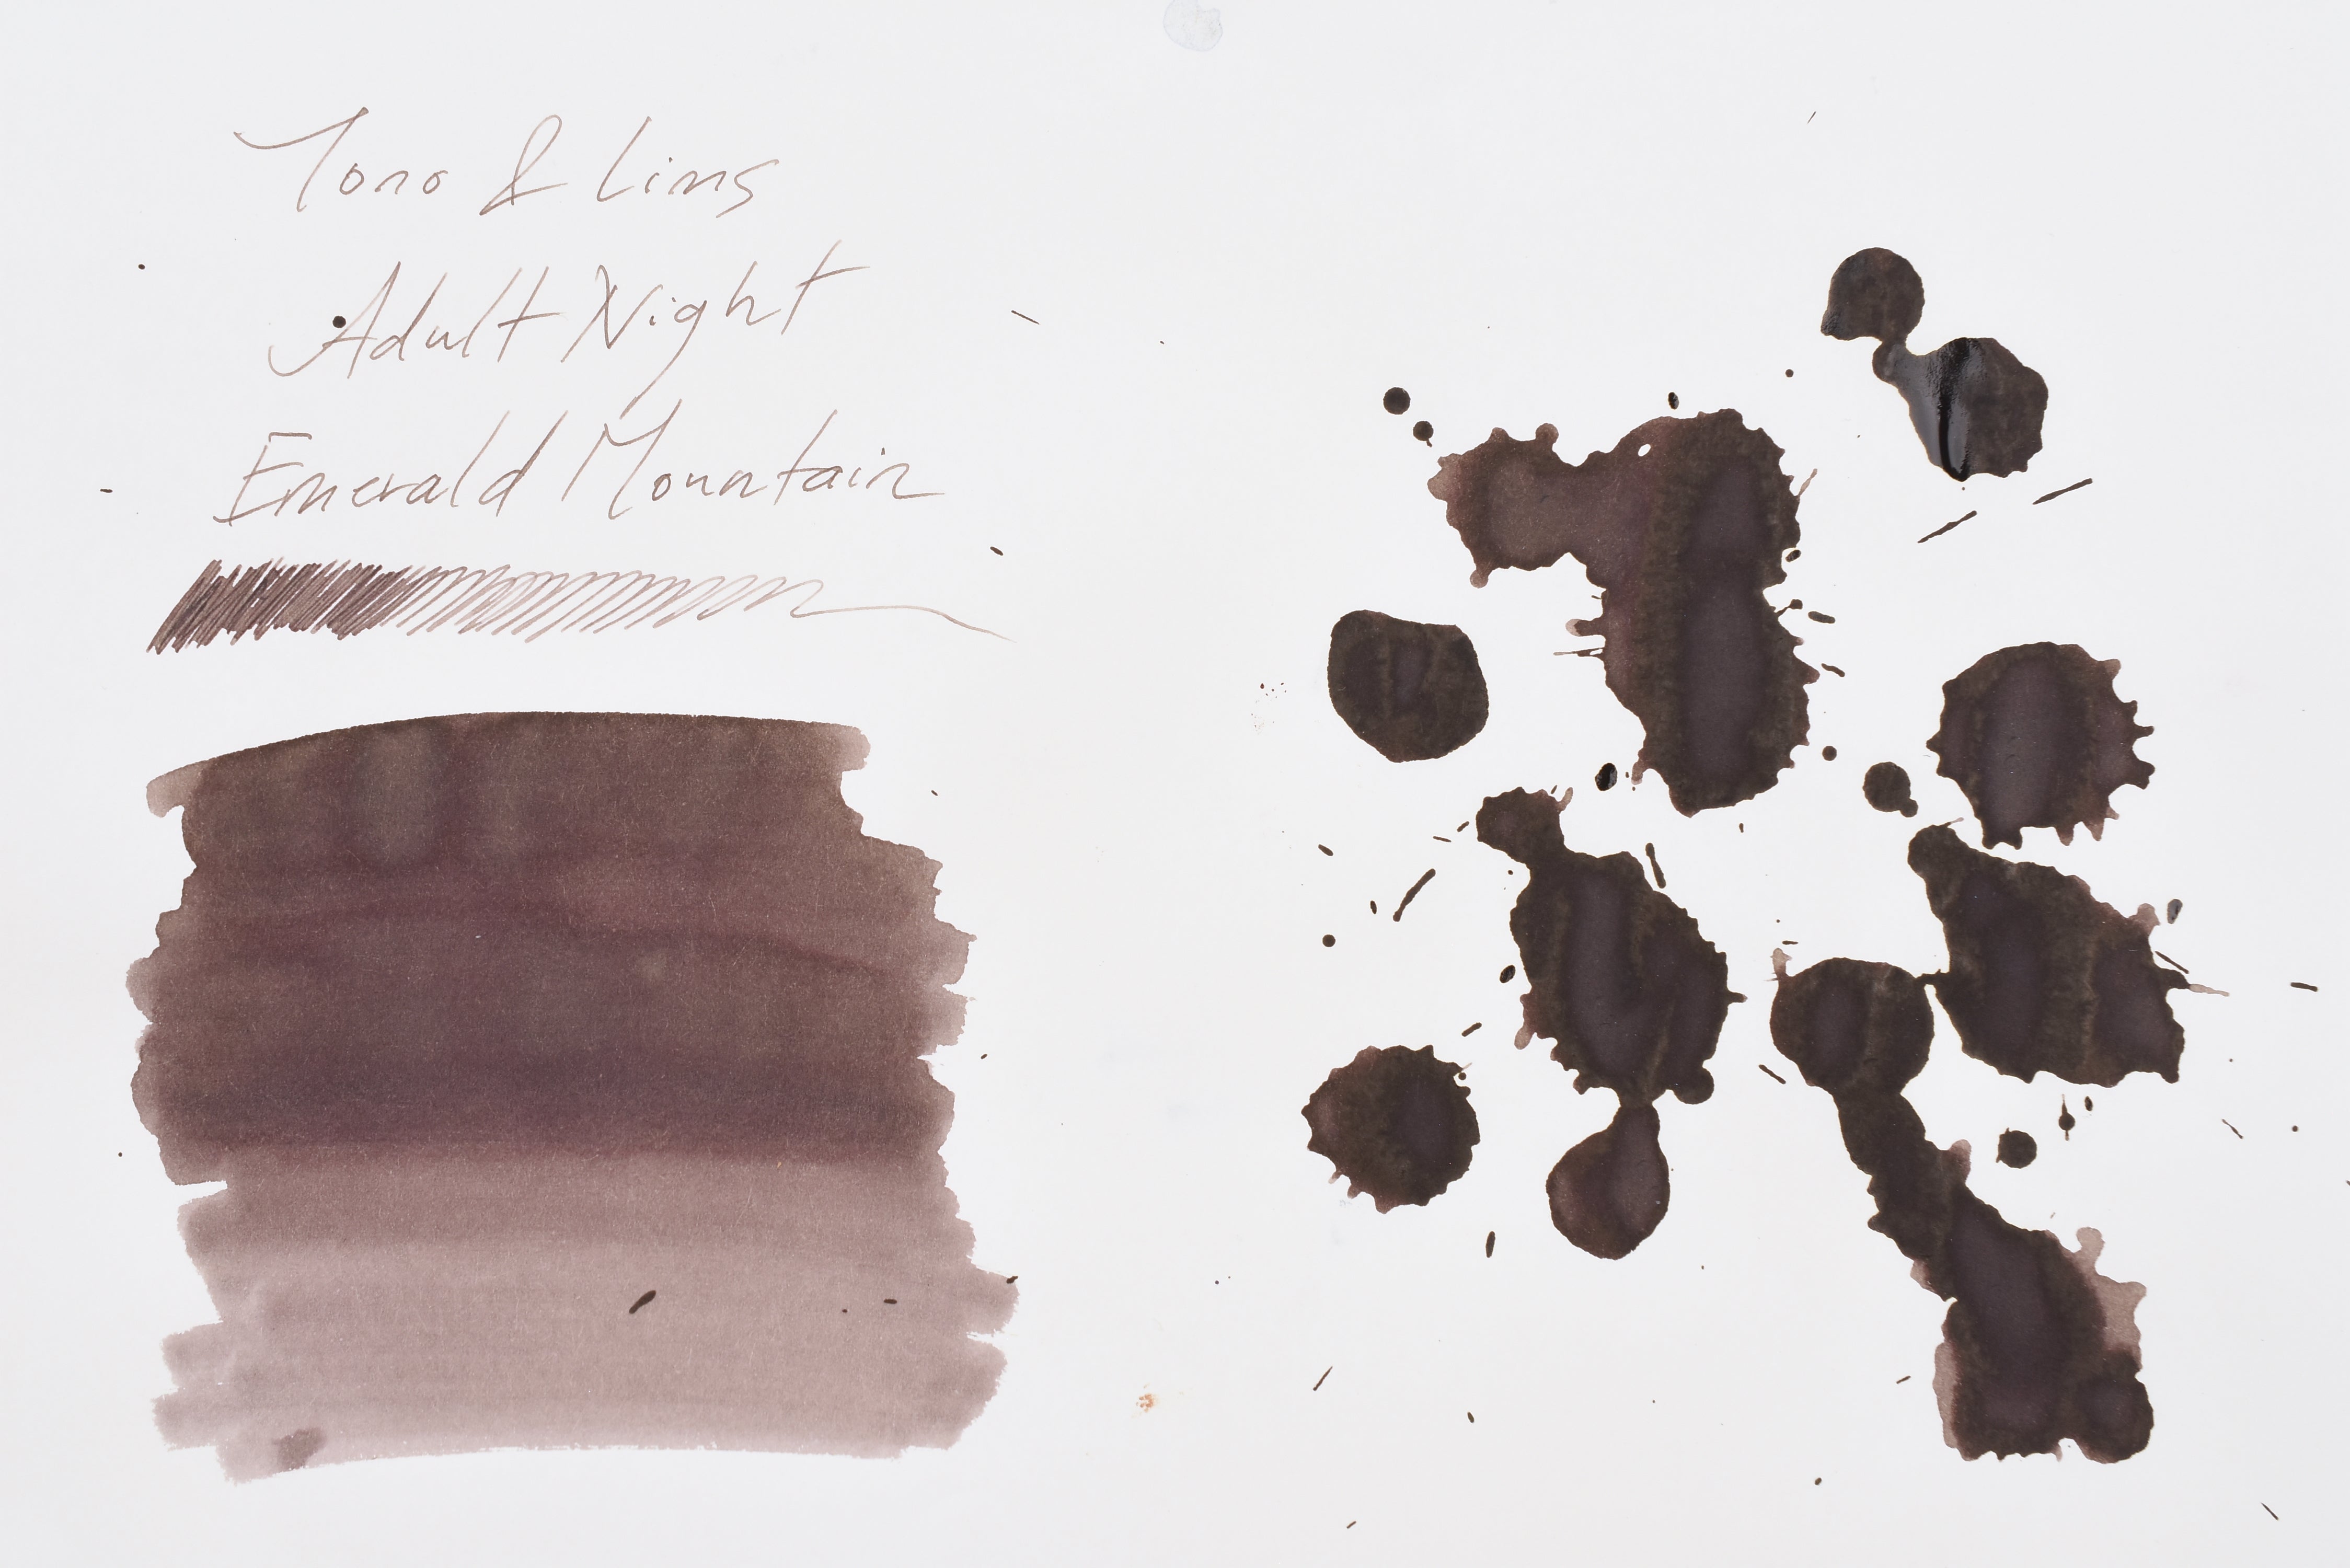 Tono & Lims
Adult Night
Emerald Mountain